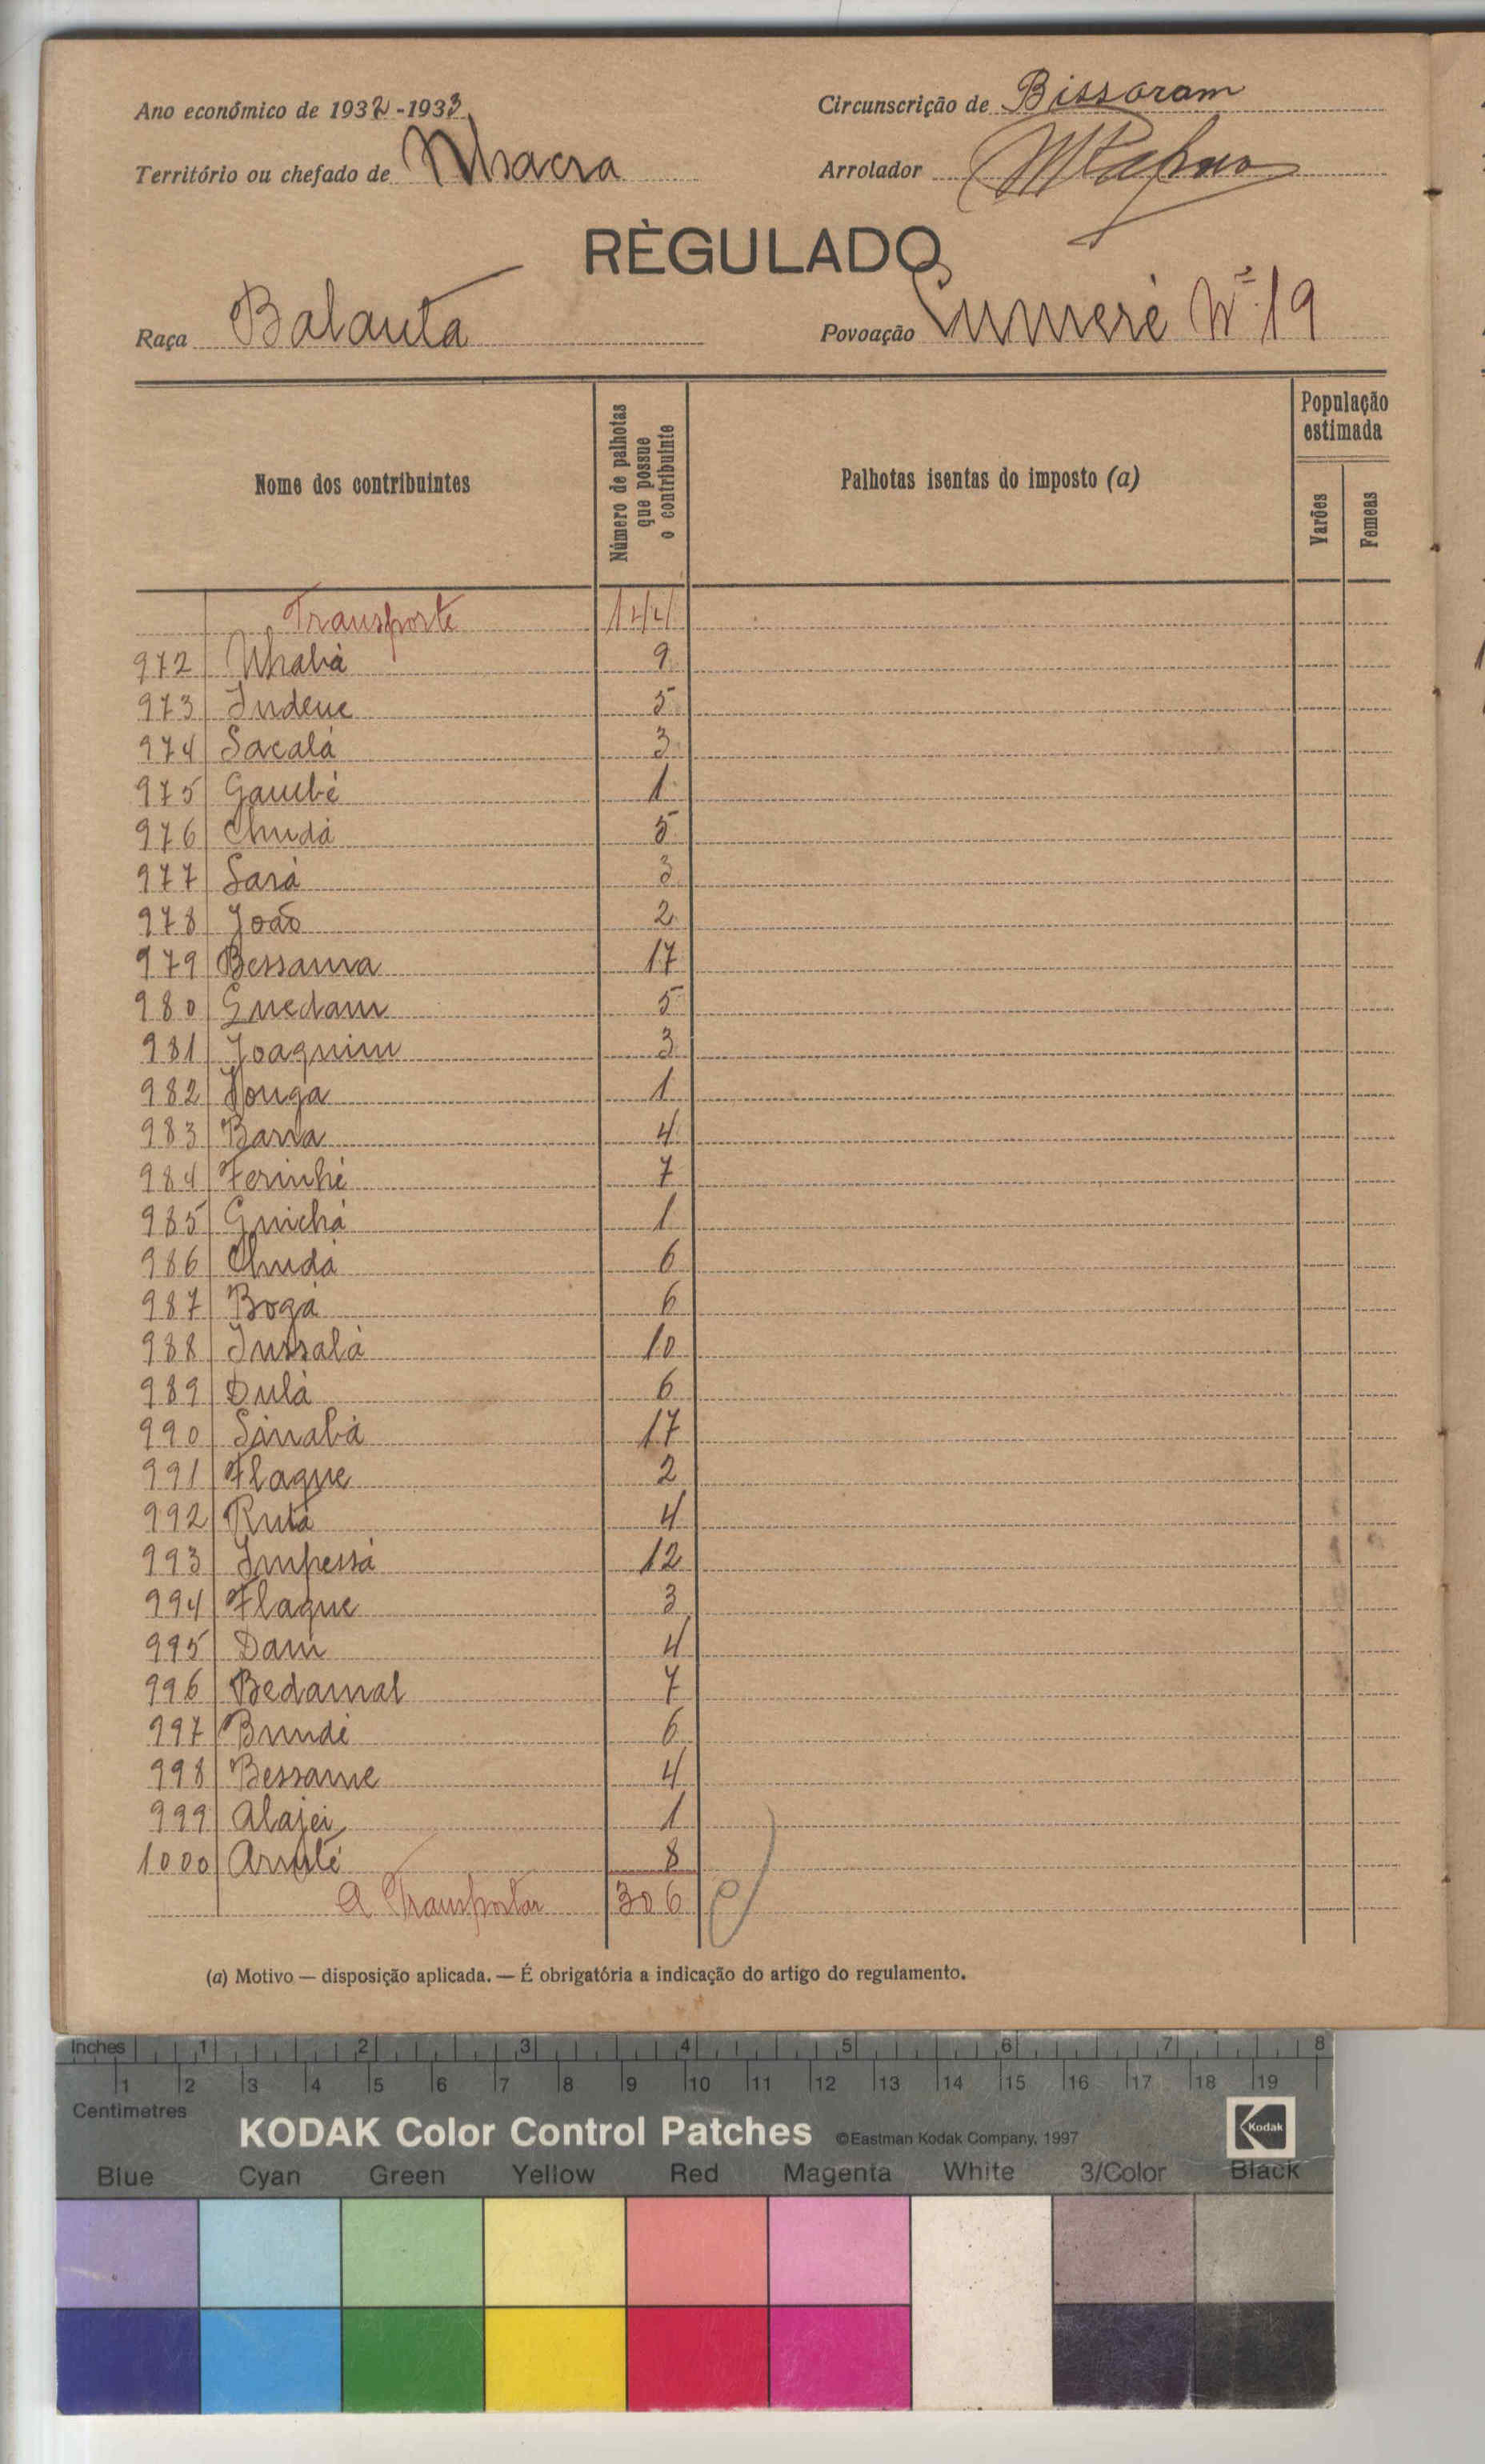 Ano económico de 1932-1933
Circunscrição de Bissoram
Território ou chefado de Nhacra
Arrolador
RÈGULADO
Raça Balanta
Povoação Cumeré Nº 19
Nome dos contribuintes
Número de palhotas que possue o contribuinte
Palhotas isentas do imposto (a)
População estimada
Varões
Femeas
Transporte 144
972 Nhabá 9
973 Indene 5
974 Sacalá 3
975 Gambé 1
976 Chudá 5
977 Sará 3
978 João 2
979 Bessanva 17
980 Guedam 5
981 Joaquim 3
982 1
983 Barra 4
984 Ferinhé 7
985 Guichá 1
986 Chudá 6
987 Bogá 6
988 Jussalá 10
989 Dulá 6
990 Sinabá 17
991 Flaque 2
992 Rutá 4
993 Impessá 12
994 Flaque 3
995 Dam 4
996 Bedamal 7
997 Brundé 6
998 Bessame 4
999 Alajei 1
1000 8
A Transportar 306
(a) Motivo — disposição aplicada. — É obrigatória a indicação do artigo do regulamento.
Inches 1 2 3 4 5 6 7 8
1 2 3 4 5 6 7 8 9 10 11 12 13 14 15 16 17 18 19
Centimetres
KODAK Color Control Patches ©Eastman Kodak Company, 1997 Kodak
Blue Cyan Green Yellow Red Magenta White 3/Color Black